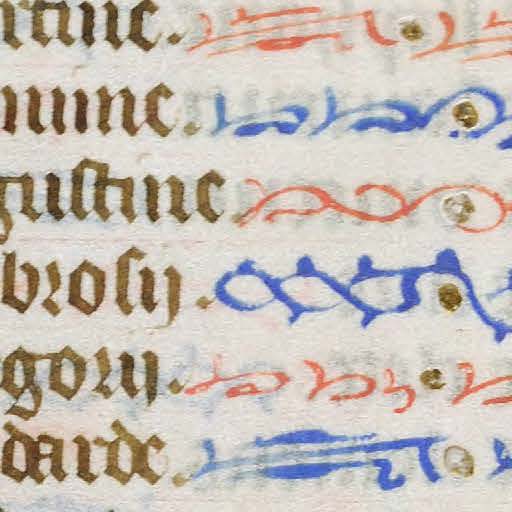 rtine.
mine.
gustine
brosij.
gorij.
darde.